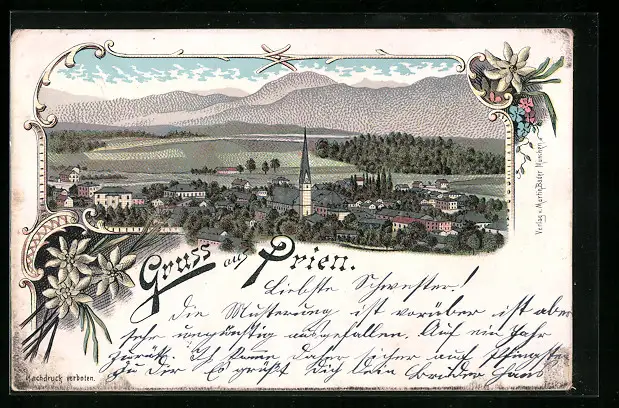 Gruss aus Prien.
Verlag v. Martin Bader München.
Liebste Schwester!
Die Musterung ist vorüber ist aber
sehr ungünstig ausgefallen. Auf ein Jahr
zurück. Ich komme daher sicher auf Pfingsten
zu Dir Es grüßt Dich Dein Bruder Hans
Nachdruck verboten.